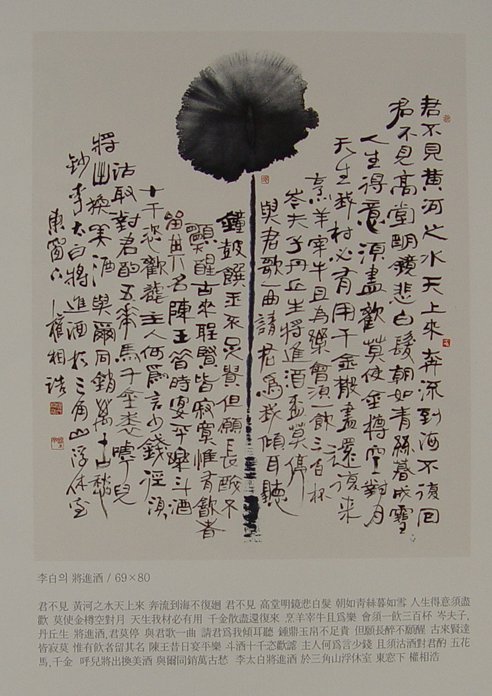 君不見黃河之水天上來奔流到海不復回
君不見高堂明鏡悲白髮朝如青絲暮成雪
人生得意須盡歡莫使金樽空對月
天生我材必有用千金散盡還復來
烹羊宰牛且為樂會須一飲三百杯
岑夫子丹丘生將進酒盃莫停
與君歌一曲請君爲我傾耳聽
鐘鼓饌玉不足貴但願長醉不
願醒古來聖賢皆寂寞惟有飲者
留其名陳王昔時宴平樂斗酒
十千恣歡謔主人何爲言少錢徑須
沽取對君酌五花馬千金裘呼兒
將出換美酒與爾同銷萬古愁
鈔李太白將進酒於三角山浮休室
東窗下權相浩
李白의 將進酒 / 69×80
君不見 黃河之水天上來 奔流到海不復廻 君不見 高堂明鏡悲白髮 朝如靑絲暮如雪 人生得意須盡
歡 莫使金樽空對月 天生我材必有用 千金散盡還復來 烹羊宰牛且爲樂 會須一飮三百杯 岑夫子,
丹丘生 將進酒,君莫停 與君歌一曲 請君爲我傾耳聽 鍾鼎玉帛不足貴 但願長醉不願醒 古來賢達
皆寂寞 惟有飮者留其名 陳王昔日宴平樂 斗酒十千恣歡謔 主人何爲言少錢 且須沽酒對君酌 五花
馬,千金 呼兒將出換美酒 與爾同銷萬古愁 李太白將進酒 於三角山浮休室 東窓下 權相浩